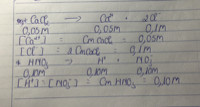 CaCl₂ → Ca²⁺ 2Cl⁻
0,05m 0,05m 0,1m
[Ca²⁺] = Cm CaCl₂ = 0,05m
[Cl⁻] = 2 Cm CaCl₂ = 0,1m
* HNO₃ → H⁺ NO₃⁻
0,10m 0,10m 0,10m
[H⁺] = [NO₃⁻] = Cm HNO₃ = 0,10m